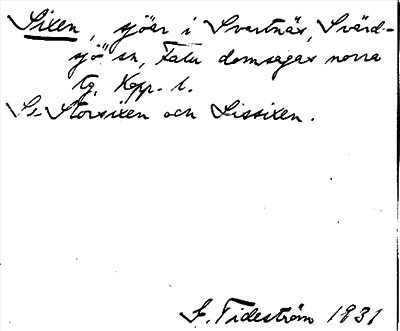 Sixen, sjöar i Svartnäs, Svärd-
sjö sn, Falu domsagas norra
tg. Kopp. l.
Se Storsixen och Lissixen.
S. Tideström 1931